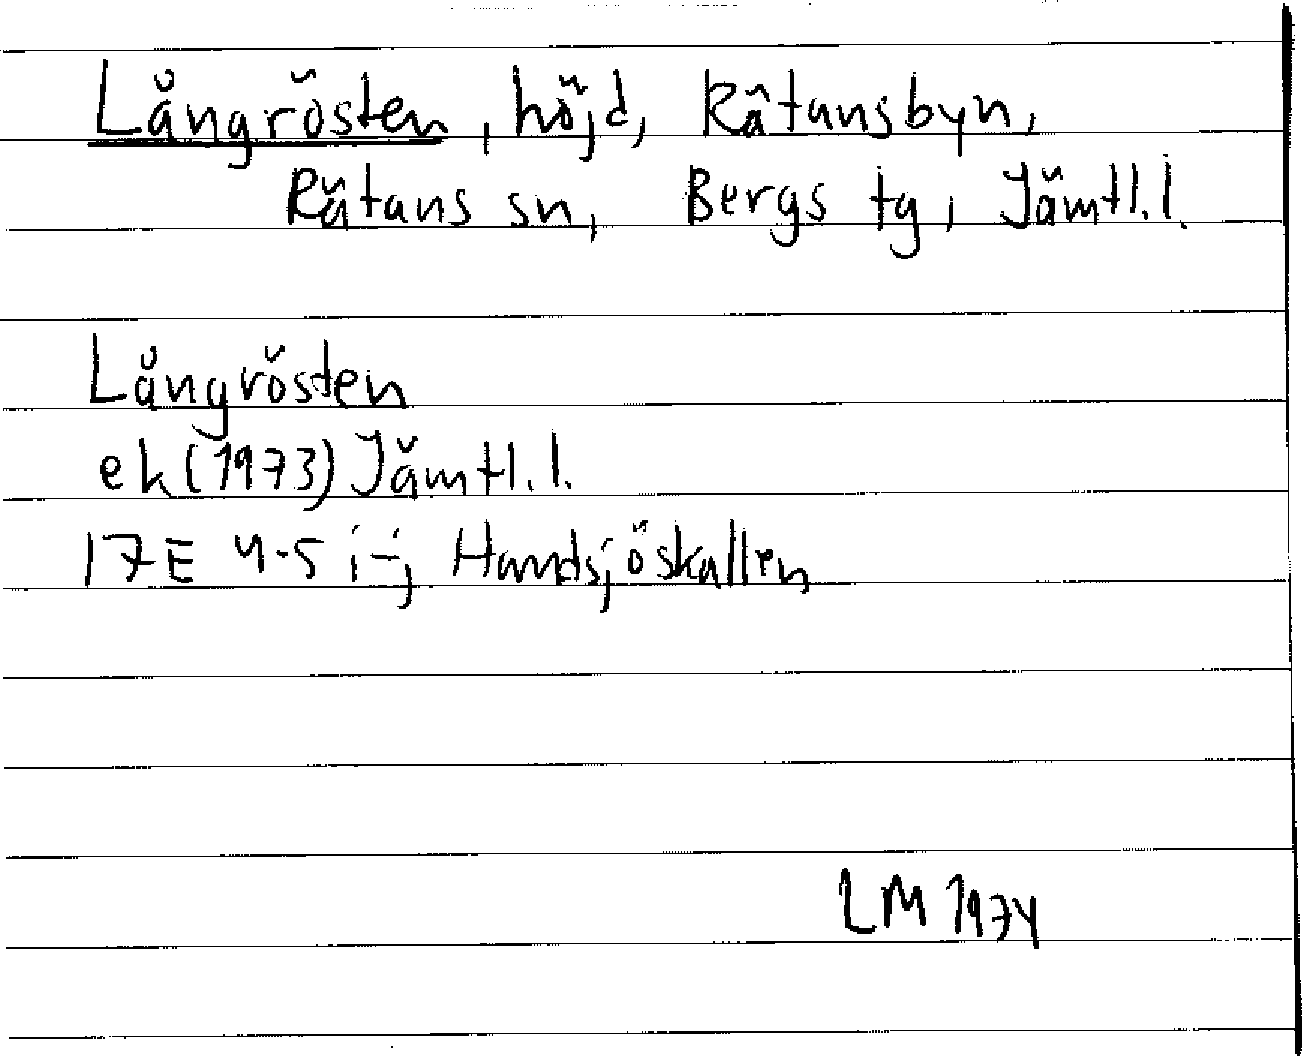 Långrösten, höjd, Råtansbyn,
Rätans sn, Bergs tg, Jämtl.l.
Långrösten
ek(1973) Jämtl.l.
17E 4-5 i-j Handsjöskallen
LM 1974